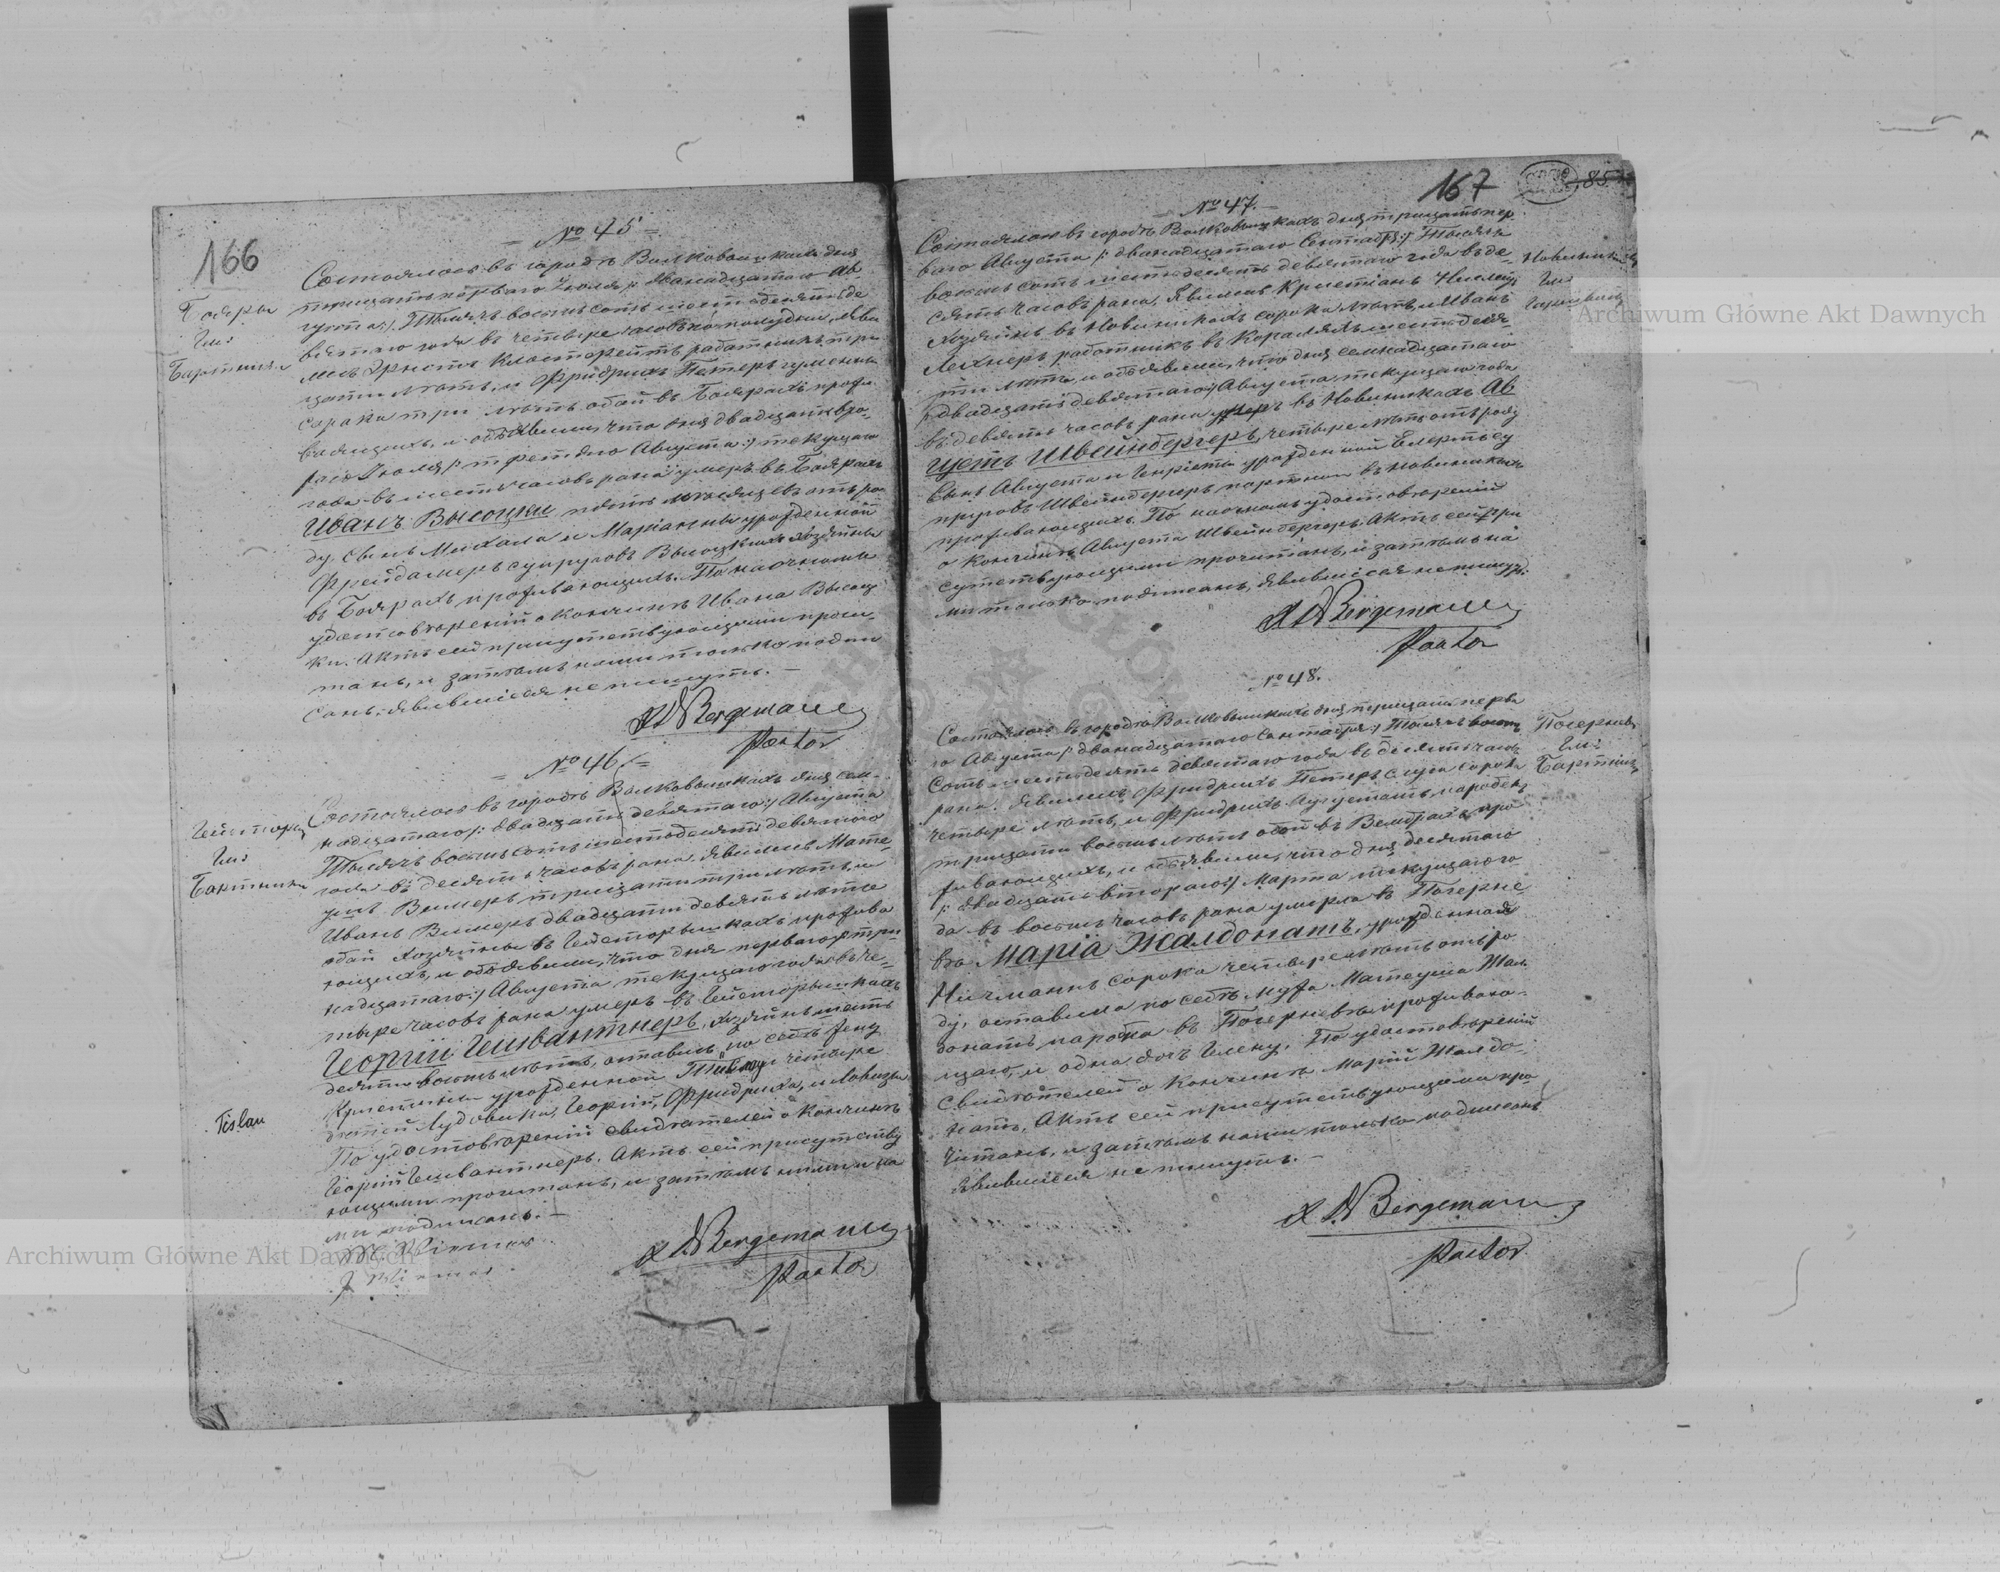 166
№ 45
Бояры
Гмз
Бартники
Состоялось въ городѣ Волковышкахъ дня
тридцать перваго Іюля /: двѣнадцатаго Ав
густа :/ Тысяча восемь сотъ шестьдесятъ де
вятаго года въ четыре часовъ по полудни, Яви
лись Христь работникъ три
цати лѣтъ, и Фридрихъ Петеръ
сорока три лѣтъ обои въ Боярахъ прожи
вающихъ, и объявили, что дня двадцать вто
раго Іюля /: третьяго Августа :/ текущаго
года въ шесть часовъ рана умеръ въ Боярахъ
Иванъ Высоцки пять мѣсяцевъ отъ ро
ду, сынъ Михала и Маріанны урожденной
Фрейдамеръ супруговъ Высоцкихъ хозяина
въ Боярахъ проживающихъ. По наочномъ
удостовѣреніи о кончинѣ Ивана Высоц
ки. Актъ сей присутствующими прочи
танъ, и затѣмъ нами только подпи
санъ, явившіеся не пишутъ. —
A W Bergemann
Pastor
№ 46
Гейсторы
Гмз
Бартники
Tislau
Состоялось въ городѣ Волковышкахъ дня сем
надцатаго /: двадцать девятаго :/ Августа
Тысячъ восемь сотъ шестьдесятъ девятаго
года въ десять часовъ рана, явились Мате
ушъ Вимеръ тридцати три лѣтъ, и
Иванъ Вимеръ двадцати девять лѣтъ
обои хозяины въ Гейсторышкахъ прожива
ющихъ, и объявили, что дня перваго /: три
надцатаго :/ Августа текущаго года въ че
тыре часовъ рана умеръ въ Гейсторышкахъ
Георгій Гешвантнеръ, хозяинъ шесть
десять восемь лѣтъ, оставилъ по себѣ жену
Кристину урожденной и четыре
дѣтей Лудовика, Георгій, Фридриха, и Ловизы
По удостовѣреніи свидѣтелей о кончинѣ
Георгій Гешвантнеръ. Актъ сей присутству
ющими прочитанъ, и затѣмъ ними и на
ми подписанъ. —
M. Wimer
J Wimer
A W Bergemann
Pastor
167
85
№ 47.
Новиники
Гмз
Состоялось въ городѣ Волковышкахъ дня тридцать пер
ваго Августа /: двѣнадцатаго Сентября :/ Тысяча
восемь сотъ шестьдесятъ девятаго года въ де
сять часовъ рана, Явились Кристіанъ
хозяинъ въ Новиникахъ сорока лѣтъ, и Иванъ
Лехнеръ работникъ въ шестьдеся
ти лѣтъ, и объявили, что дня семнадцатаго
/: двадцать девятаго :/ Августа текущаго года
въ девять часовъ рана умеръ въ Новиникахъ Ав
густъ Швейнбергеръ, четыре лѣтъ отъ роду
сынъ Августа и Генріеты урожденной су
пруговъ Швейнбергеръ, въ Новиникахъ
проживающихъ. По наочномъ удостовѣреніи
о кончинѣ Августа Швейнбергеръ. Актъ сей при
сутствующими прочитанъ, и затѣмъ на
ми только подписанъ, явившіеся не пишутъ.
A W Bergemann
Pastor
№ 48.
Погерневъ
Гмз
Бартники
Состоялось въ городѣ Волковышкахъ дня тридцать перва
го Августа /: двѣнадцатаго Сентября :/ Тысячъ восемь
сотъ шестьдесятъ девятаго года въ десять часовъ
рана. Явились Фридрихъ Петеръ слуга сорока
четыре лѣтъ, и Фридрихъ
тридцати восемь лѣтъ обои въ про
живающихъ, и объявили, что дня десятаго
/: двадцать втораго :/ Марта текущаго го
да въ восемь часовъ рана умерла въ Погерне
вѣ Марія Жалдонатъ, урожденная
Ничманнъ сорока четыре лѣтъ отъ ро
ду, оставила по себѣ мужа Матеуша Жал
донатъ паробка въ Погерневѣ прожива
щаго, и одна дочь Гелену. По удостовѣреніи
свидѣтелей о кончинѣ Марій Жалдо
натъ, Актъ сей присутствующими про
читанъ, и затѣмъ нами только подписанъ
явившіеся не пишутъ. —
A W Bergemann
Pastor
Archiwum Główne Akt Dawnych
Archiwum Główne Akt Dawnych